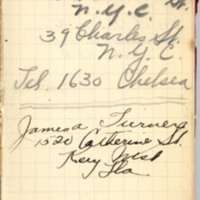 N.Y.C. St.
39 Charles St.
N.Y.C.
Tel. 1630 Chelsea
James a Turner
1520 Catherine St.
Key West
Fla